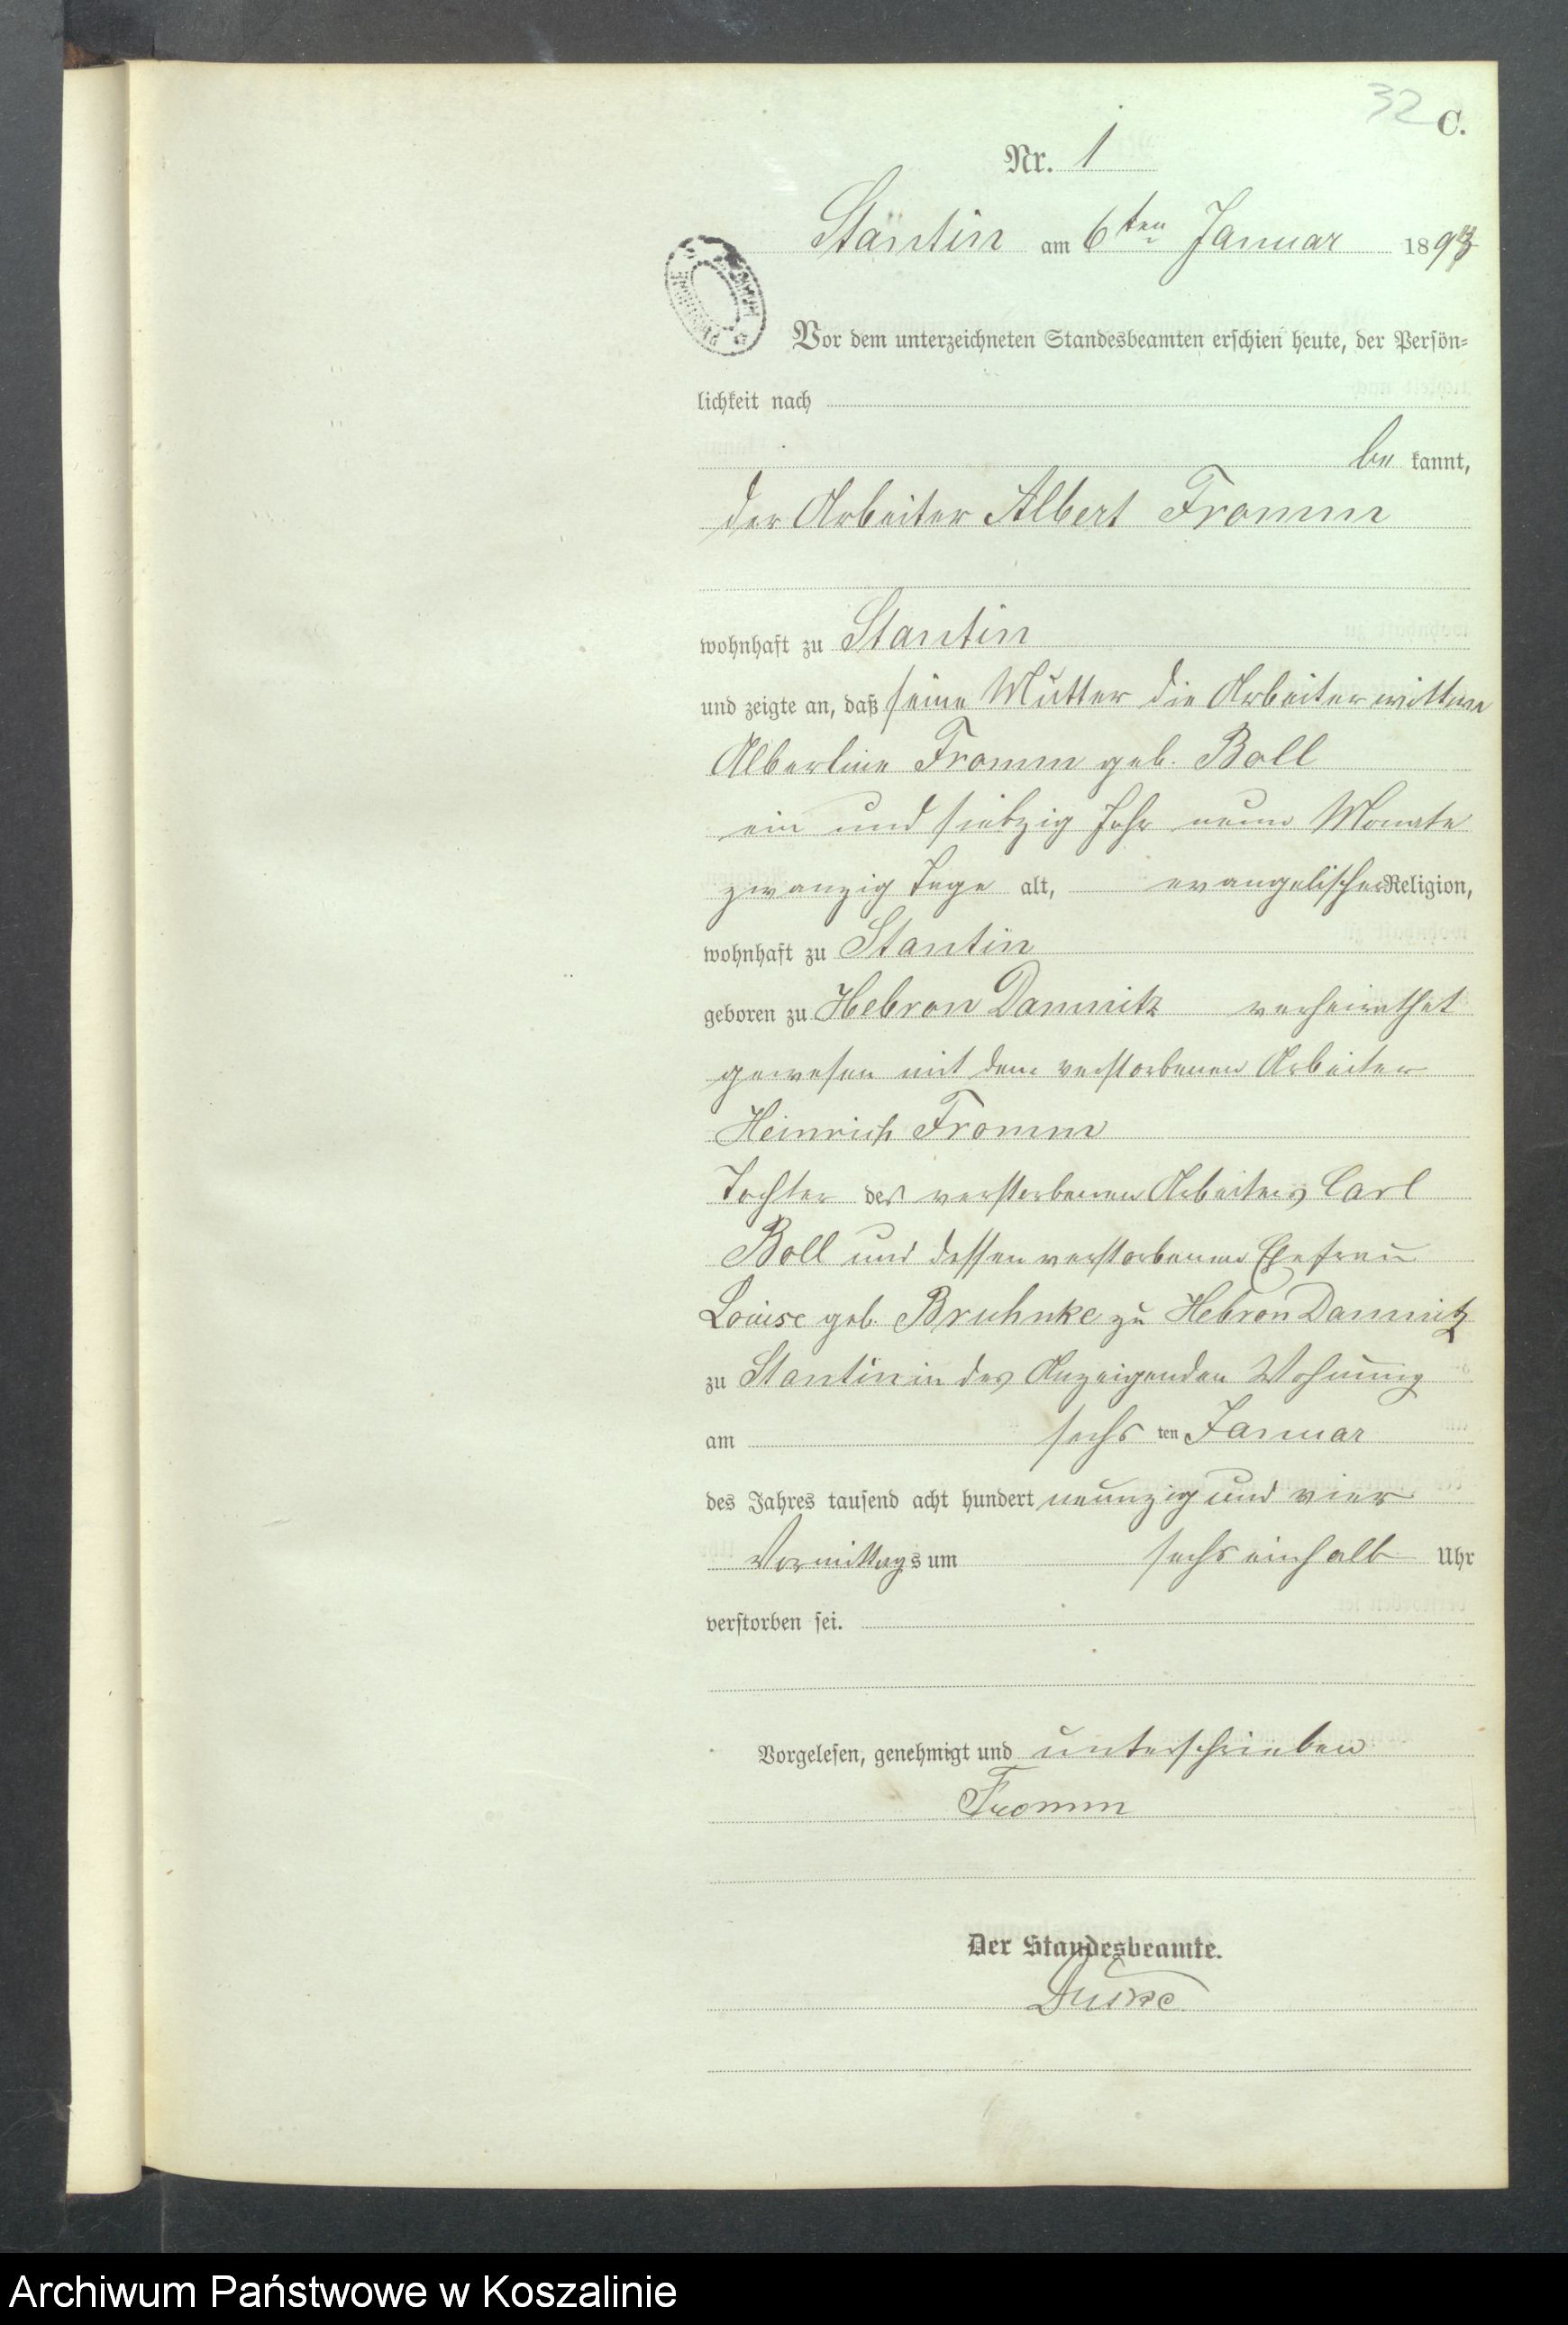 32
C.
Nr. 1
Stantin am 6ten Januar 1894
Vor dem unterzeichneten Standesbeamten erschien heute, der Persön-
lichkeit nach
be kannt,
der Arbeiter Albert Fromm
wohnhaft zu Stantin
und zeigte an, daß seine Mutter die Arbeiterwittwe
Albertine Fromm geb. Boll
ein und siebzig Jahr neun Monate
zwanzig Tage alt, evangelischer Religion,
wohnhaft zu Stantin
geboren zu Hebron Damnitz verheirathet
gewesen mit dem verstorbenen Arbeiter
Heinrich Fromm
Tochter des verstorbenen Arbeiters Carl
Boll und dessen verstorbenen Ehefrau
Louise geb. Bruhnke zu Hebron Damnitz
zu Stantin in des Anzeigenden Wohnung
am sechs ten Januar
des Jahres tausend acht hundert neunzig und vier
Vormittags um sechs einhalb Uhr
verstorben sei.
Vorgelesen, genehmigt und unterschrieben
Fromm
Der Standesbeamte.
Archiwum Państwowe w Koszalinie